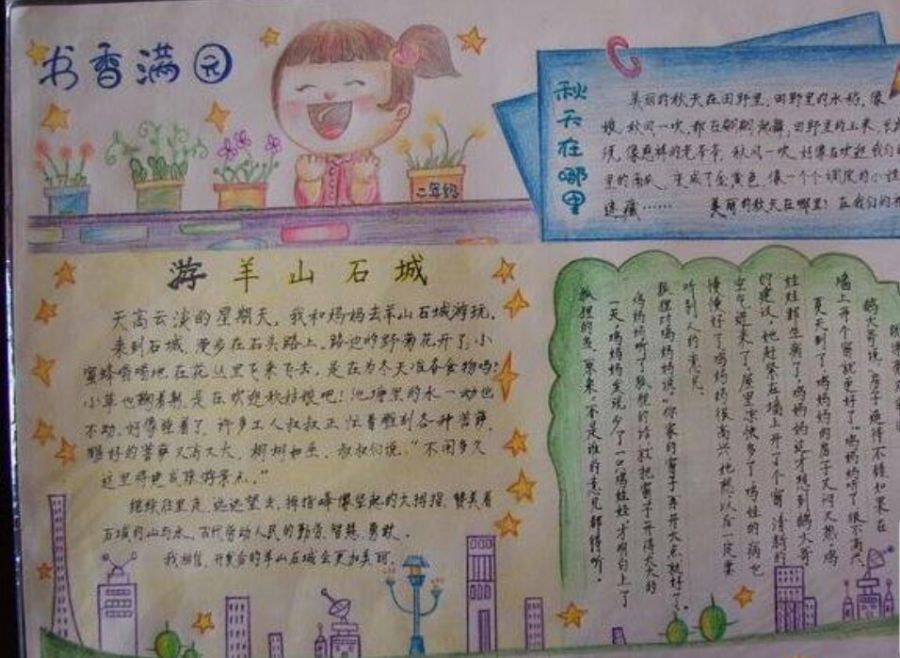 书香满园
二年级
秋天在哪里
美丽的秋天在田野里，田野里的水稻，像
娘，秋风一吹，都在翩翩起舞，田野里的玉米，长
须，像慈祥的老爷爷，秋风一吹，好像在欢迎我们
里的，变成了金黄色，像一个个调皮的小
迷藏……　美丽的秋天在哪里？在我们的
游羊山石城
天高云淡的星期天，我和妈妈去羊山石城游玩。
来到石城，漫步在石头路上，路边的野菊花开了，小
蜜蜂嗡嗡地在花丛里飞来飞去，是在为冬天准备食物吗？
小草也鞠着躬，是在欢迎秋姑娘吧！池塘里的水一动也
不动，好像睡着了，许多工人叔叔正忙着雕刻各种菩萨，
雕好的菩萨又高又大，栩栩如生，叔叔们说：“不用多久
这里将建成旅游景点。”
继续往里走，远远望去，拇指峰像竖起的大拇指，赞美着
石城的山与水，古代劳动人民的勤劳、智慧、勇敢。
我相信，开发后的羊山石城会更加美丽。
鹤大哥说：房子造得不错如果在
墙上开个窗就更好了。”鸡妈妈听了，很不高兴。
夏天到了，鸡妈妈的房子又闷又热，鸡
娃娃都生病了。鸡妈妈这才想到鹤大哥
的建议，她赶紧在墙上开了个窗，清新的
空气进来了，屋里凉快多了，鸡娃的病也
慢慢好了，鸡妈妈很高兴，她想：以后一定要
听别人的意见。
狐狸对鸡妈妈说：“你家的窗子再开大点就好了。”
鸡妈妈听了狐狸的话，就把窗子开得大大的
一天，鸡妈妈发现少了一只鸡娃娃，才明白上了
狐狸的当，原来，不是谁的意见都得听。